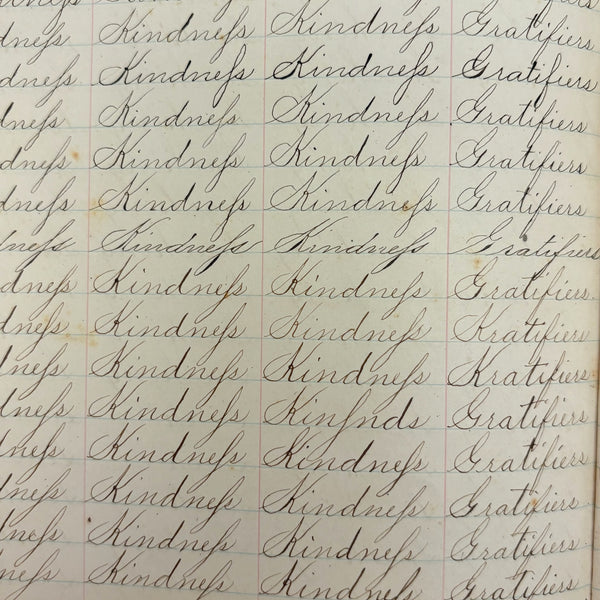 dneſs Kindneſs Kindneſs Gratifiers
dneſs Kindneſs Kindneſs Gratifiers
dneſs Kindneſs Kindneſs Gratifiers
dneſs Kindneſs Kindneſs Gratifiers
dneſs Kindneſs Kindneſs Gratifiers
dneſs Kindneſs Kindneſs Gratifiers
dneſs Kindneſs Kindneſs Gratifiers.
dneſs Kindneſs Kindneſs Kratifiers
dneſs Kindneſs Kindneſs Kratifiers
dneſs Kindneſs Kinſnds Gratifiers
dneſs Kindneſs Kindneſs Gratifiers
dneſs Kindneſs Kindneſs Gratifiers
dneſs Kindneſs Kindneſs Gratifiers
neſs Kindneſs Kindneſs Gratifiers